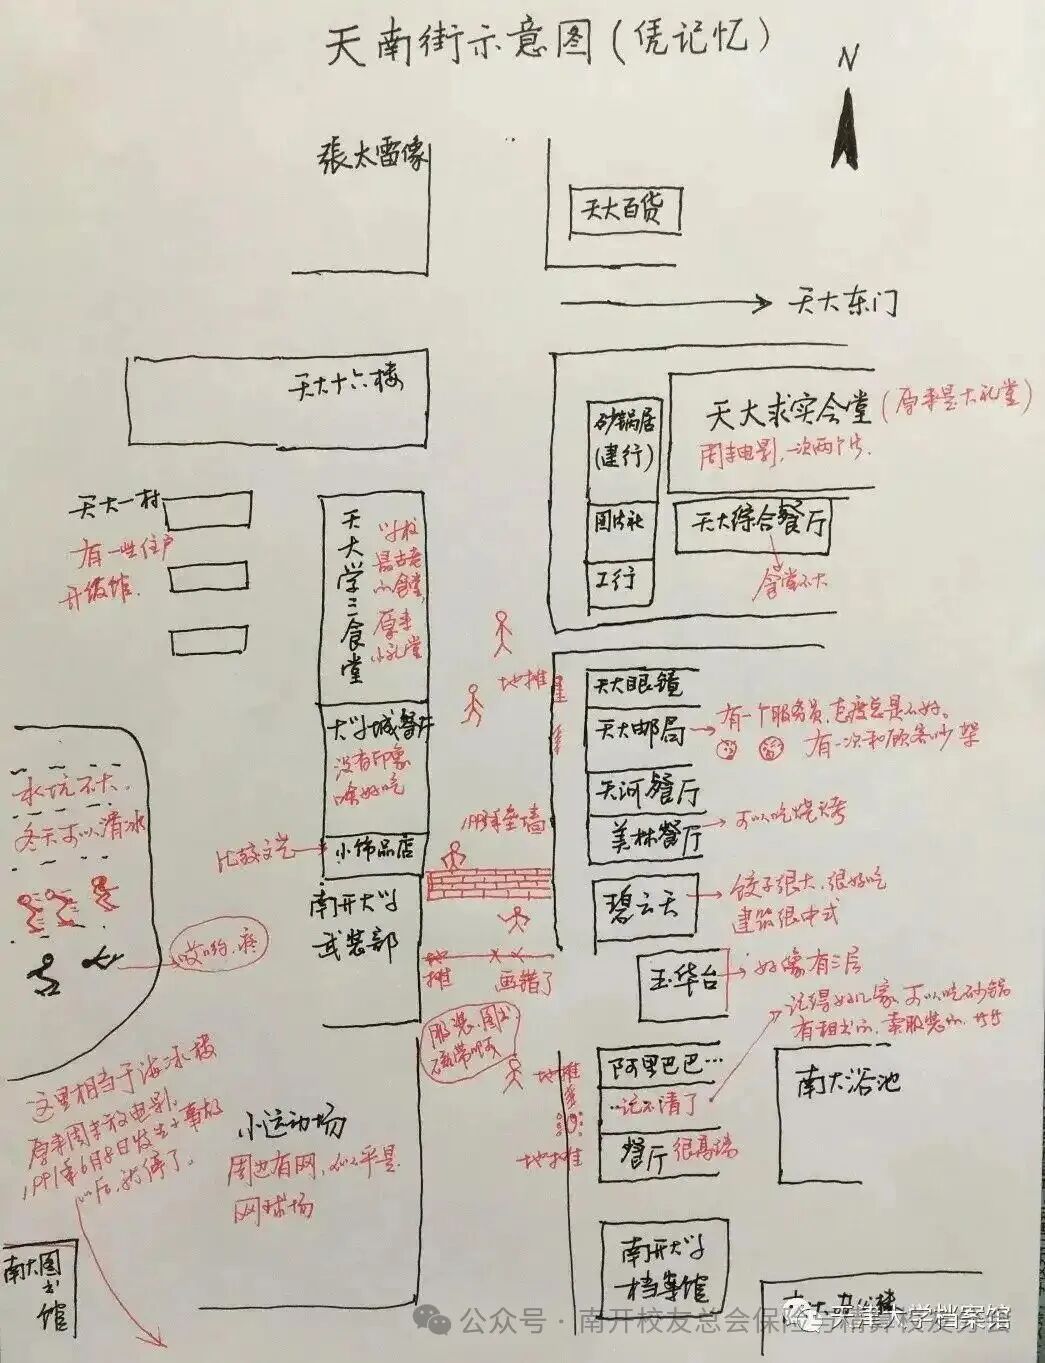 天南街示意图(凭记忆)
N
張太雷像
天大百货
天大东门
天大十六楼
砂锅居
(建行)
天大求实会堂
(原来是大礼堂)
周末电影,一次两个片.
图片社
天大综合餐厅
工行
食堂不大
天大一村
有一些住户
开饭馆.
天大学三食堂
学校
最古老
小食堂,
原来
小礼堂
地摊
天大眼镜
天大邮局
有一个服务员,态度总是不好。
有一次和顾客吵架
大学城餐厅
没有印象
啥好吃
天河餐厅
美林餐厅
可以吃烧烤
水坑不大,
冬天可以滑冰
比较文艺
小饰品店
垒墙
南开大学
武装部
碧云天
饺子很大,很好吃
建筑很中式
哎哟,疼
地摊
画错了
玉华台
好像有三层
记得好几家,可以吃砂锅
有租书的,卖服装的,
服装,图书
磁带
阿里巴巴…
…记不清了
餐厅
很高端
地摊
地摊
南大浴池
这里相当于海冰极
原来周末放电影,
1991年6月8日发生小事故
以后,就停了。
小运动场
周边有网,似乎是
网球场
南大图书馆
南开大学
档案馆
公众号·南开校友总会保险与精算校友分会
天津大学档案馆